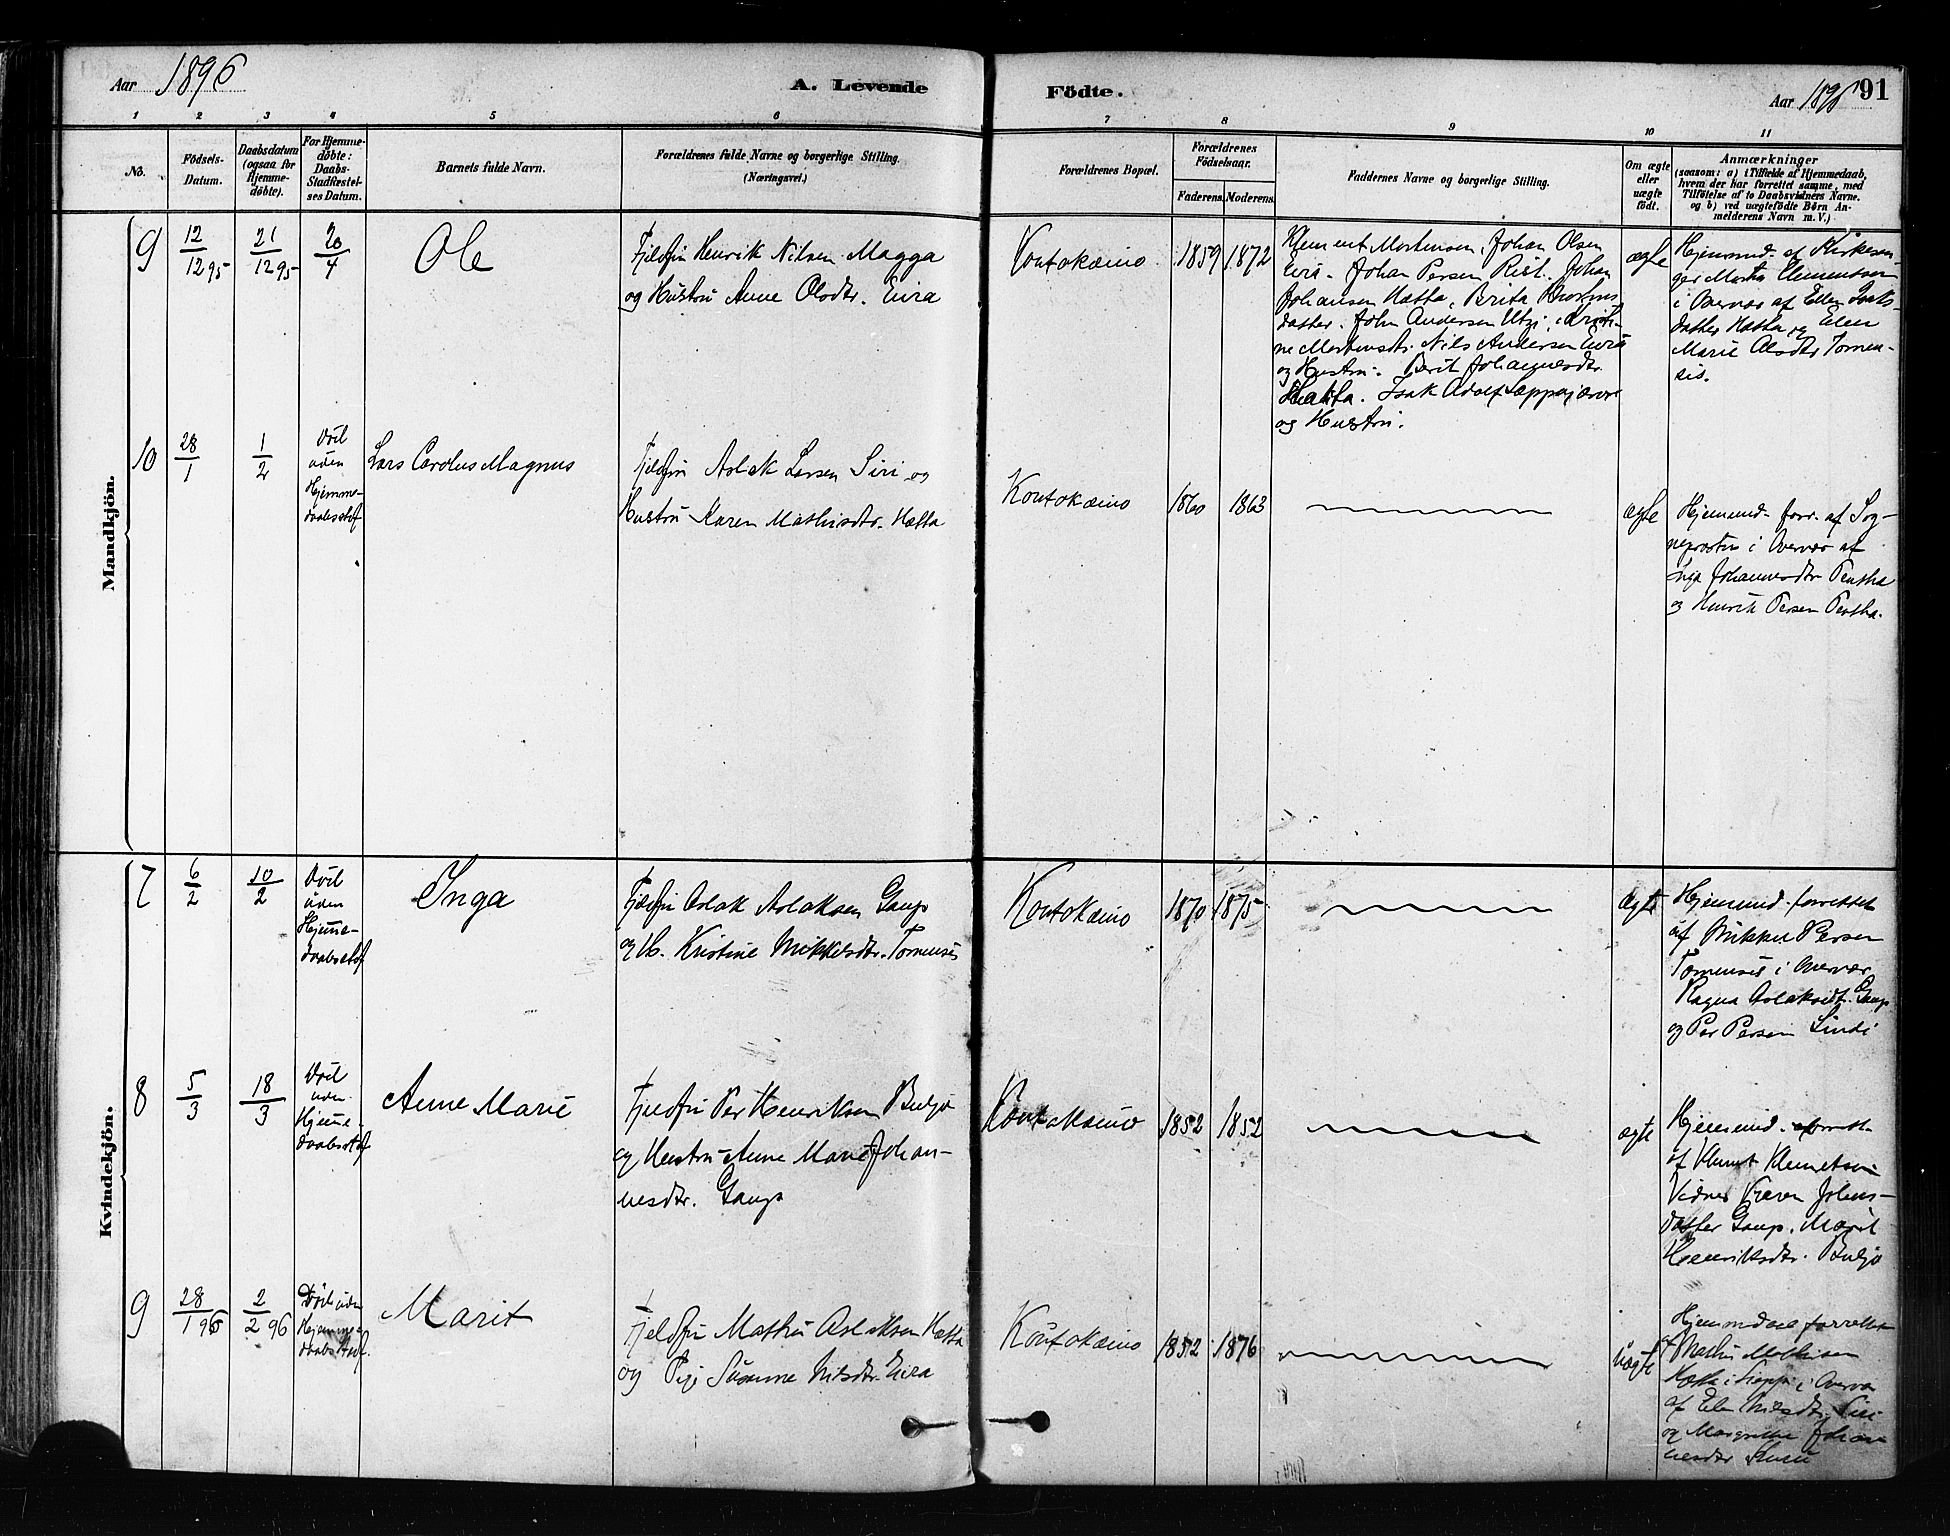 Aar 1896
A. Levende
Födte.
Aar 1896 91
1 2 3 4 5 6 7 8 9 10 11
No.
Födsels-
Datum.
Daabsdatum
(ogsaa for
Hjemme-
döbte).
For Hjemme-
döbte:
Daabs-
Stadfæstel-
ses Datum.
Barnets fulde Navn.
Forældrenes fulde Navne og borgerlige Stilling.
(Næringsvei.)
Forældrenes Bopæl.
Forældrenes
Födselsaar.
Faderens. Moderens.
Faddernes Navne og borgerlige Stilling.
Om ægte
eller
uægte
födt.
Anmærkninger
(saasom: a) i Tilfælde af Hjemmedaab,
hvem der har forrettet samme, med
Tilföielse af to Daabsvidners Navne.
og b) ved uægtefödte Börn An-
melderens Navn m. V.)
Mandkjön.
9
12/12 95
21/12 95
20/4
Ole
Fjeldfin Henrik Nilsen Magga
og Hustru Anne Olsdtr. Eira
Koutokæino
1859 1872
Klement Mortensen, Johan Olsen
Eira. Johan Persen Rist. Johan
Johansen Hætta, Brita
datter. John Andersen Utzi, Kristi-
ne Mortensdtr. Nils Andersen Eira
og Hustru. Berit Johannesdtr.
Hætta. Isak Adolf Læppæjærvi
og Hustru.
ægte
Hjemmd. af Kirkesan-
ger Martin Clementsen
i Overvær af Ellen Isaks-
datter Hætta og Elen
Marie Olsdtr Tornen-
sis.
10
28/1
1/2
Död
uden
Hjemme-
daabsstaf
Lars Carolus Magnus
Fjeldfin Aslak Larsen Siri og
Hustru Karen Mathisdtr. Hætta
Koutokæino
1860 1863
ægte
Hjemmd. forr. af Sog-
nepresten i Overvær af
Inga Johannesdtr Pentha
og Henrik Persen Pentha.
Kvindekjön.
7
6/2
10/2
Död
uden
Hjemme-
daabsstaf
Inga
Fjeldfin Aslak Aslaksen Gaup
og H. Kristine Mikkelsdtr. Tornensis
Koutokæino
1870 1875
ægte
Hjemmd. forrettet
af Mikkel Persen
Tornensis i Overvær
Ragna Aslaksdt. Gaup
og Per Persen Sindi
8
5/3
18/3
Död
uden
Hjemme-
daabsstaf
Anne Marie
Fjeldfin Per Henriksen Buljo
og Hustru Anne Marie Johan-
nesdtr. Gaup
Koutokæino
1852 1852
ægte
Hjemmd. forrett.
af Klemet Klemetsen
Vidner Karen Johns-
datter Gaup. Marit
Henriksdtr. Buljo
9
28/1 96
2/2 96
Död uden
Hjemme-
daabsstaf.
Marit
Fjeldfin Mathis Aslaksen Hætta
og Pige Susanne Nilsdtr. Eira
Koutokæino
1852 1876
uægte
Hjemmdaab forrettet
af Mathis Mathisen
Hætta i Overvær
af Elen Nilsdtr. Siri
og Margrethe Johan-
nesdtr